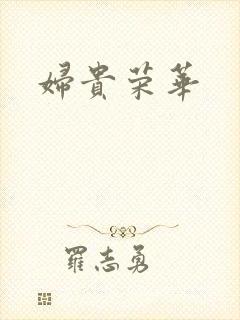 婦貴荣華
羅志勇